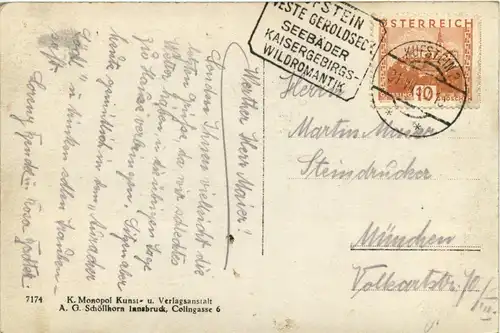 KUFSTEIN
FESTE GEROLDSECK
SEEBÄDER
KAISERGEBIRGS-
WILDROMANTIK
ÖSTERREICH
KUFSTEIN 2
10
Werther Herr Maier!
Senden Ihnen vielleicht die
letzten Grüße, da wir schlechtes
Wetter haben u. die übrigen Tage
zu Hause verbringen.
heute gemütlich in dem Auracher
Löchl u. trinken edlen Trauben-
saft.
Herrn
Martin Maier
Steindrucker
München
Volkartstr. 70/III
7174
K. Monopol Kunst- u. Verlagsanstalt
A. G. Schöllhorn Innsbruck, Colingasse 6